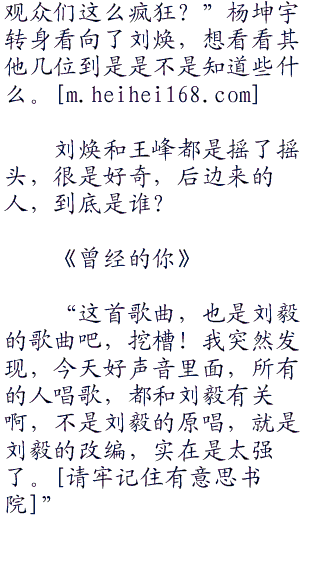 观众们这么疯狂？”杨坤宇
转身看向了刘焕，想看看其
他几位到是是不是知道些什
么。[m.heihei168.com]
刘焕和王峰都是摇了摇
头，很是好奇，后边来的
人，到底是谁？
《曾经的你》
“这首歌曲，也是刘毅
的歌曲吧，挖槽！我突然发
现，今天好声音里面，所有
的人唱歌，都和刘毅有关
啊，不是刘毅的原唱，就是
刘毅的改编，实在是太强
了。[请牢记住有意思书
院]”